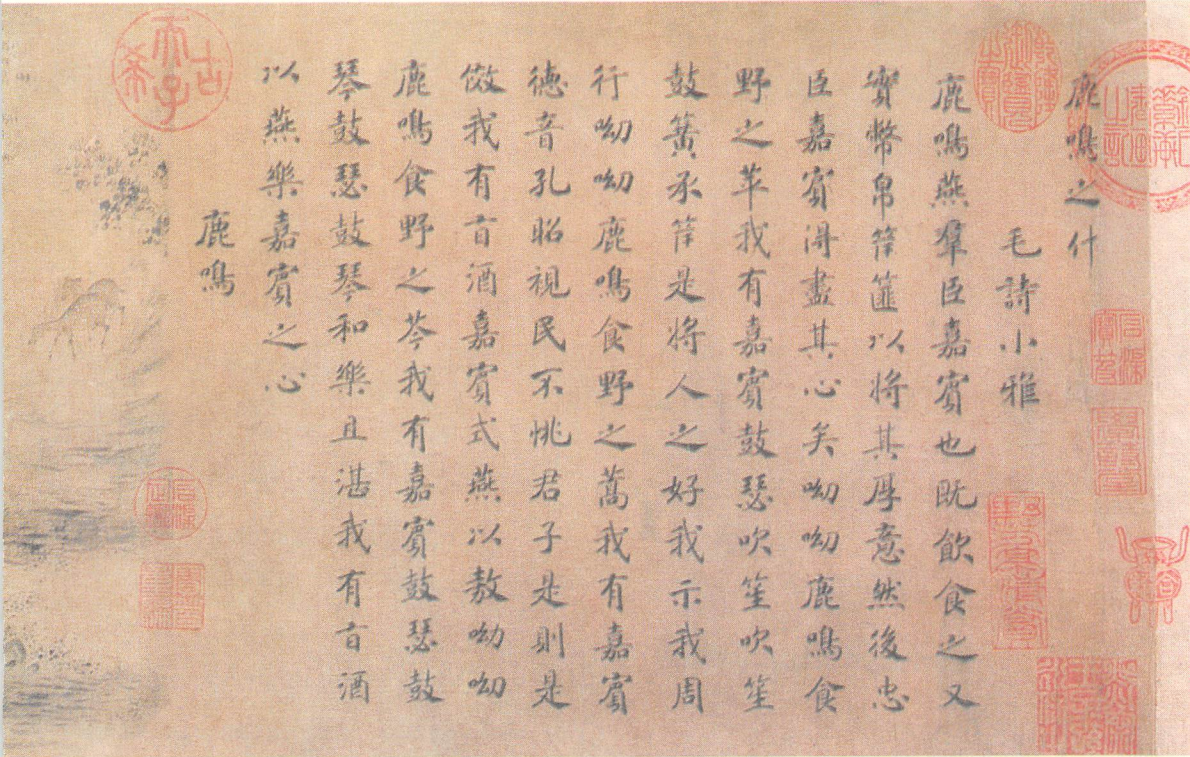 鹿鳴之什
毛詩小雅
鹿鳴燕羣臣嘉賓也既飲食之又
實幣帛筐篚以將其厚意然後忠
臣嘉賓得盡其心矣呦呦鹿鳴食
野之苹我有嘉賓鼓瑟吹笙吹笙
鼓簧承筐是將人之好我示我周
行呦呦鹿鳴食野之蒿我有嘉賓
德音孔昭視民不恌君子是則是
傚我有旨酒嘉賓式燕以敖呦呦
鹿鳴食野之芩我有嘉賓鼓瑟鼓
琴鼓瑟鼓琴和樂且湛我有旨酒
以燕樂嘉賓之心
鹿鳴
乾隆御覽之寶
古希天子